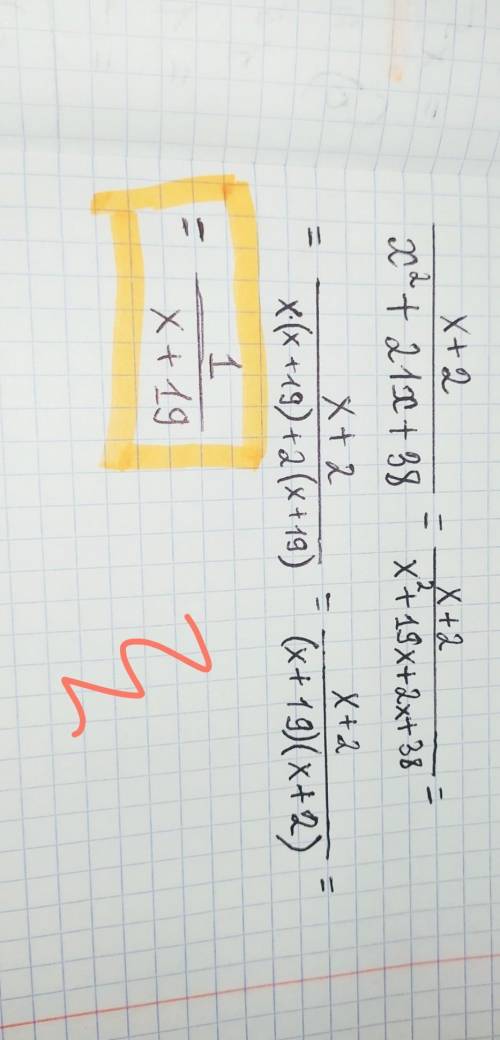 x + 2 / x² + 21x + 38 = x + 2 / x² + 19x + 2x + 38 =
= x + 2 / x·(x + 19) + 2(x + 19) = x + 2 / (x + 19)(x + 2) =
= 1 / x + 19